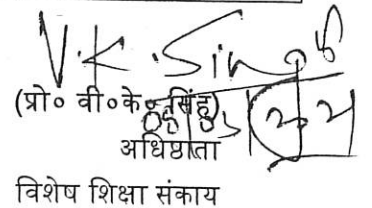 V.K. Singh
(प्रो० वी०के० सिंह)
अधिष्ठाता
विशेष शिक्षा संकाय